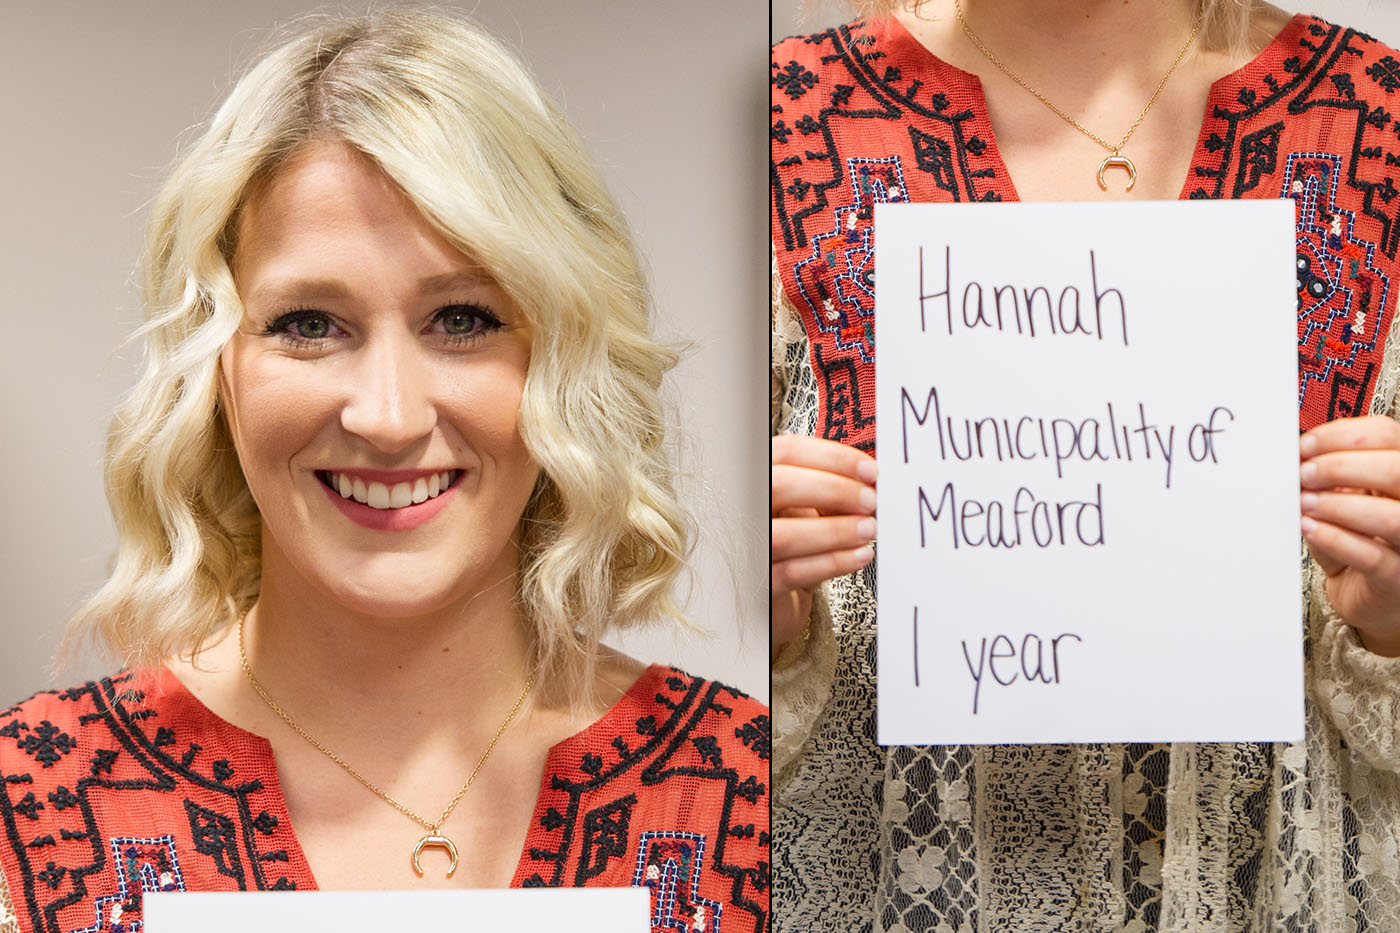 Hannah
Municipality of
Meaford
1 year